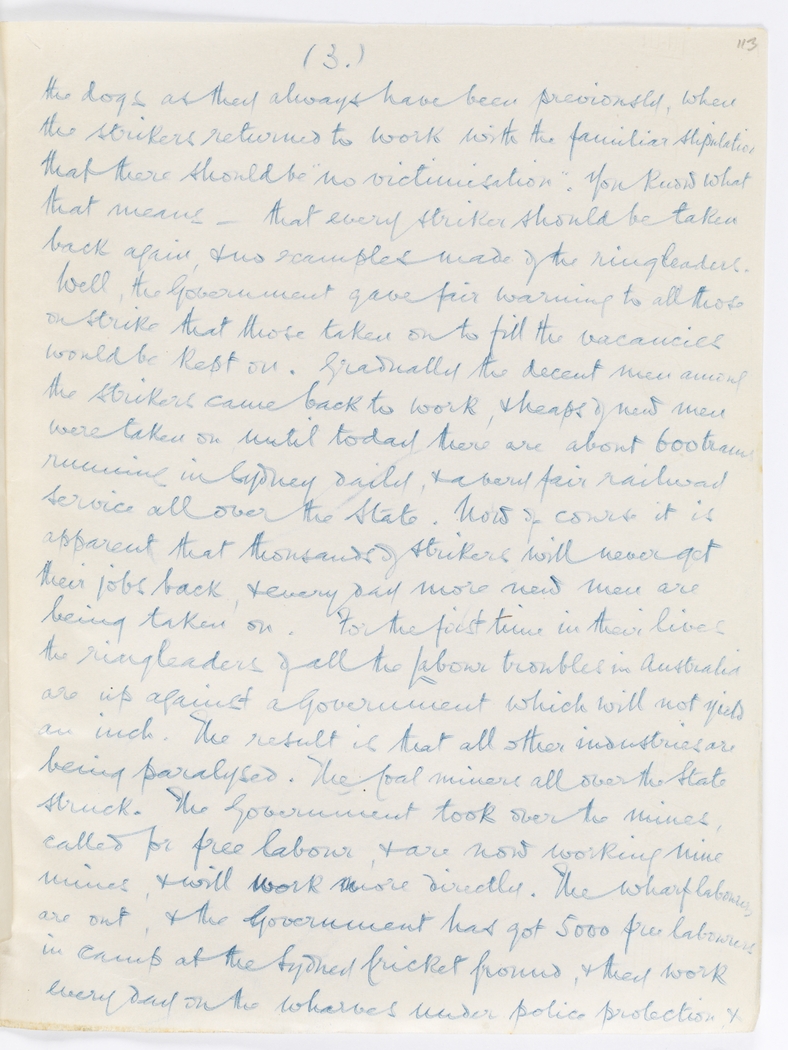 (3.)
113
the dogs as they always have been previously, when
the strikers returned to work with the familiar stipulation
that there should be "no victimisation". You know what
that means — that every striker should be taken
back again, & no examples made of the ringleaders.
Well, the Government gave fair warning to all those
on strike that those taken on to fill the vacancies
would be kept on. Gradually the decent men among
the strikers came back to work, & heaps of new men
were taken on until today there are about 600 trams
running in Sydney daily, & a very fair railroad
service all over the State. Now of course it is
apparent that thousands of strikers will never get
their jobs back, & every day more new men are
being taken on. For the first time in their lives
the ringleaders of all the labour troubles in Australia
are up against a Government which will not yield
an inch. The result is that all other industries are
being paralysed. The Coal miners all over the State
struck. The Government took over the mines,
called for free labour, & are now working nine
mines, & will work more directly. The wharf labourers
are out, & the Government has got 5000 free labourers
in camp at the Sydney Cricket Ground, & they work
every day on the wharves under police protection, &